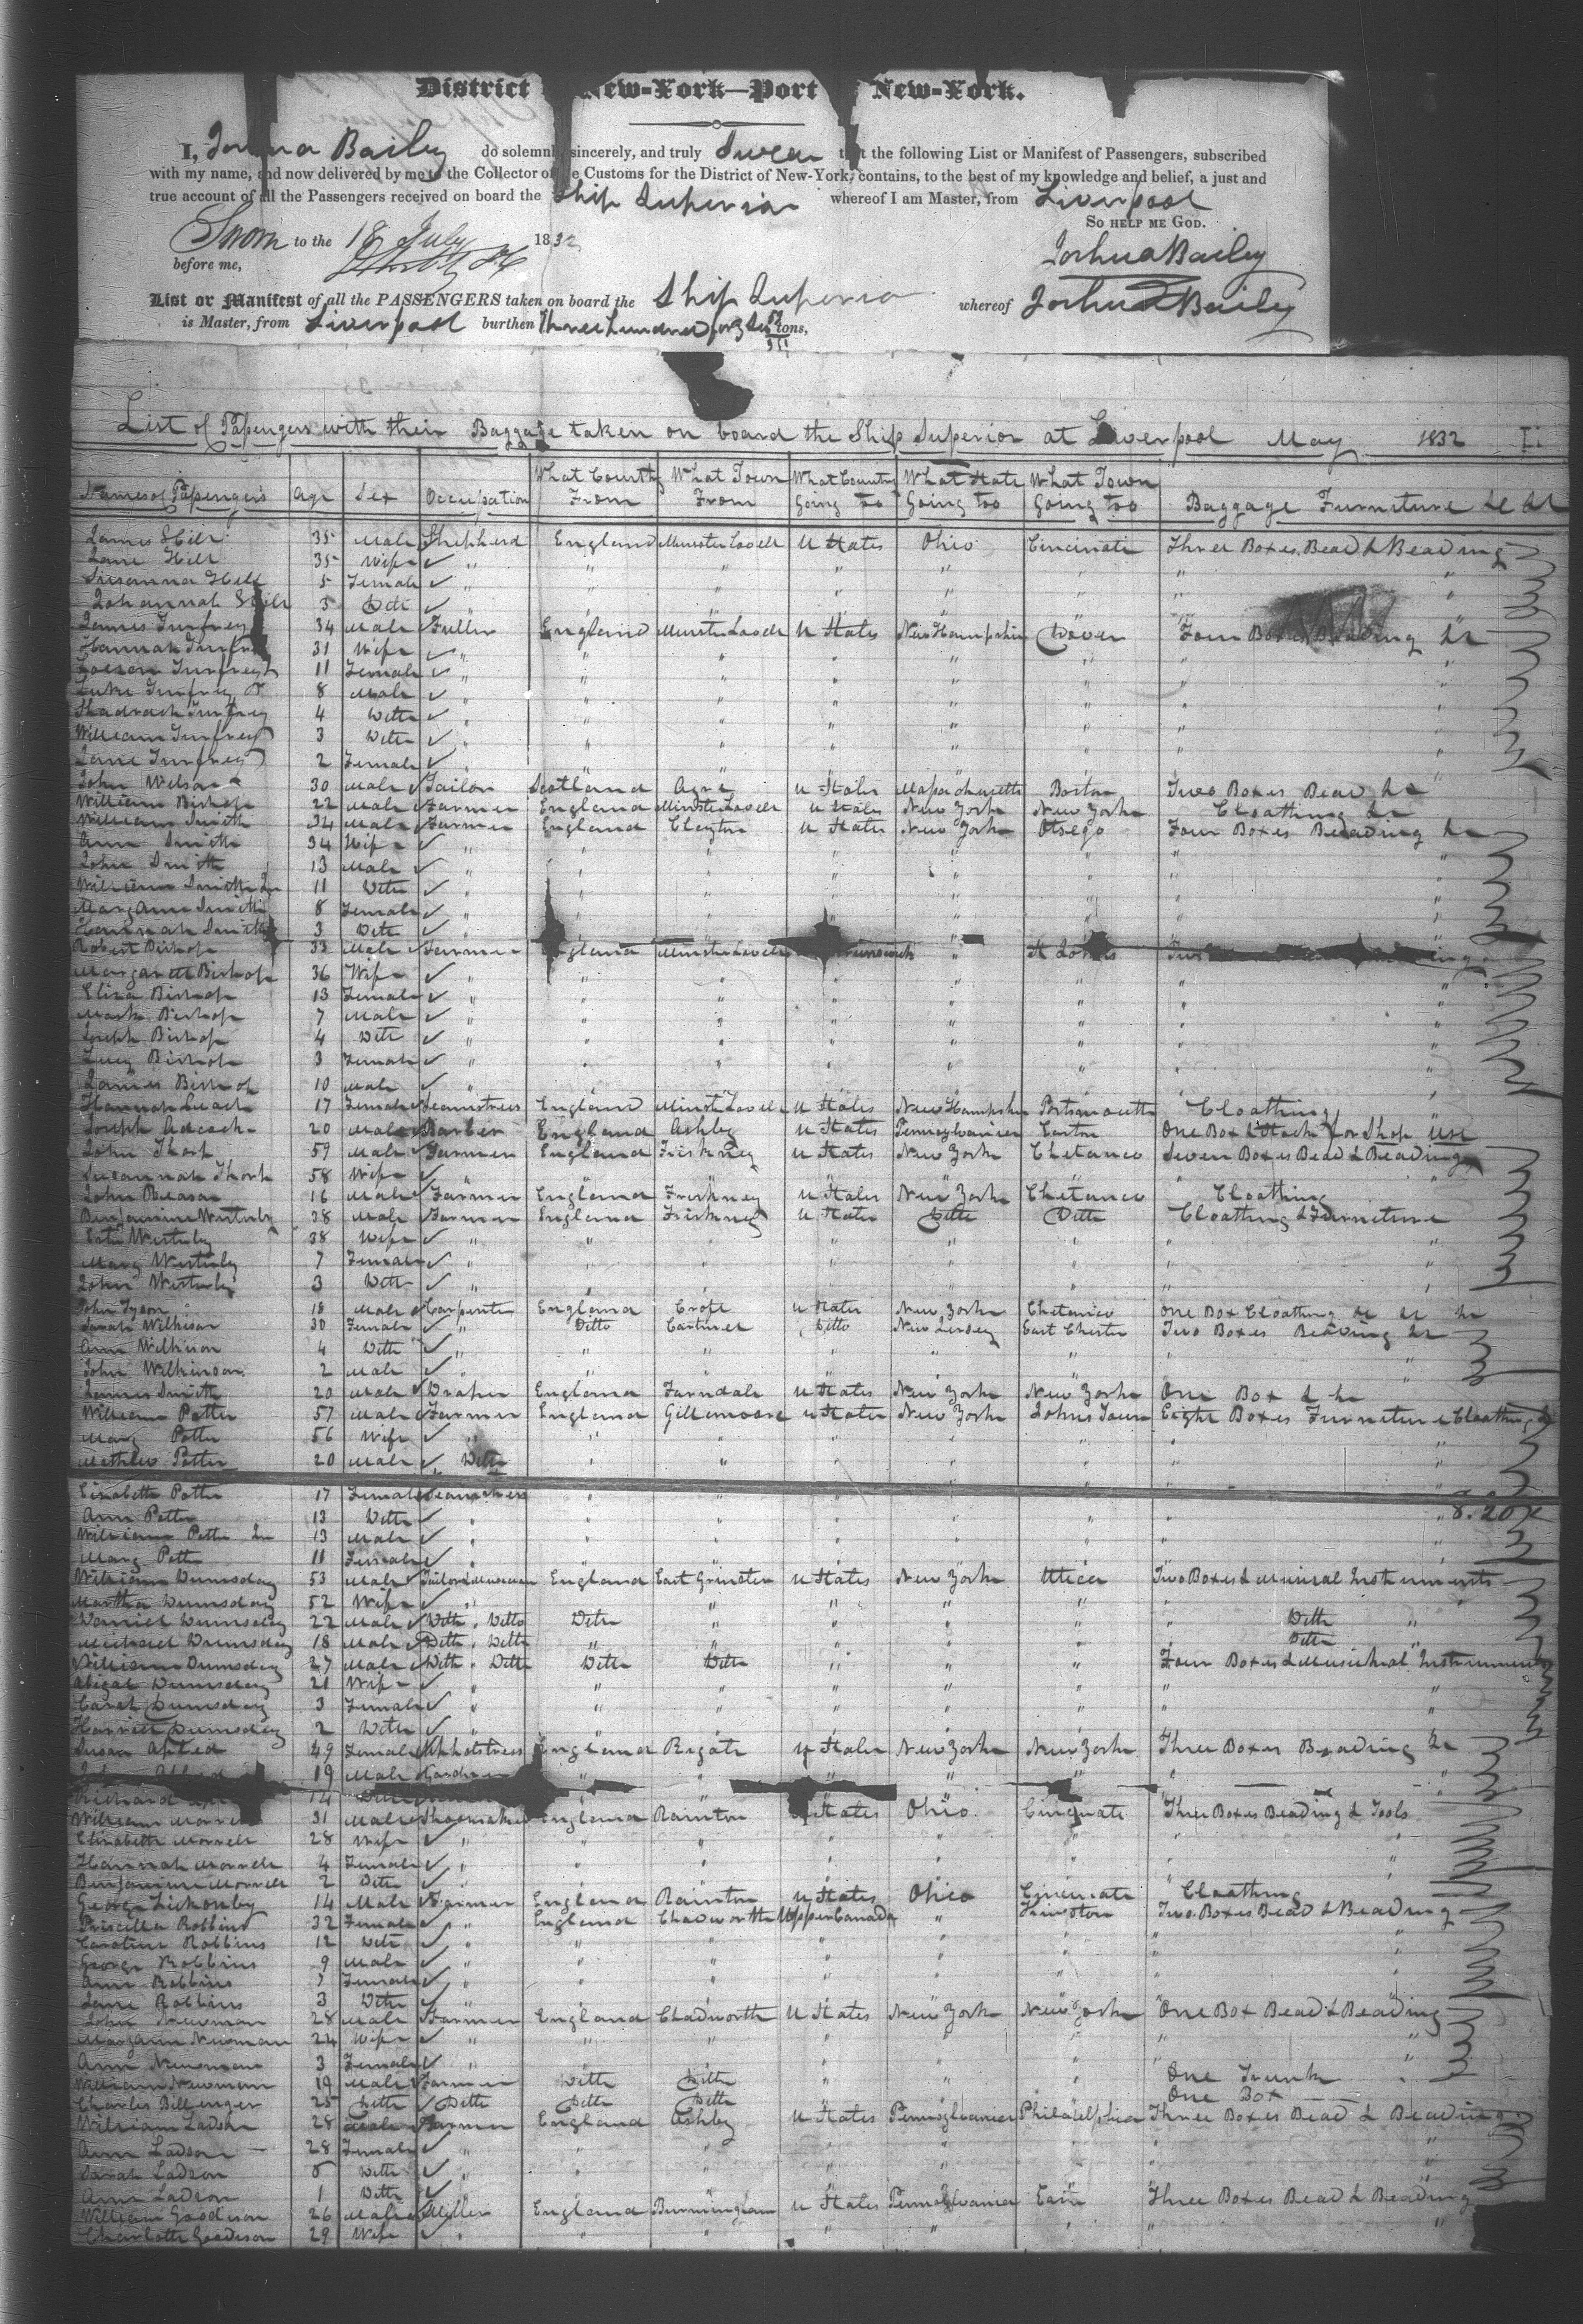 District New-York—Port New-York.
I, Joshua Bailey do solemnly, sincerely, and truly Swear that the following List or Manifest of Passengers, subscribed
with my name, and now delivered by me to the Collector of the Customs for the District of New-York, contains, to the best of my knowledge and belief, a just and
true account of all the Passengers received on board the Ship Superior whereof I am Master, from Liverpool
So help me God.
Sworn to the 18 July 1832
before me,
Joshua Bailey
List or Manifest of all the PASSENGERS taken on board the Ship Superior whereof Joshua Bailey
is Master, from Liverpool burthen Three hundred tons,
List of Passengers with their Baggage taken on board the Ship Superior at Liverpool May 1832
Names of Passengers Age Sex Occupation What Country From What Town From What Country Going too What State Going too What Town Going too Baggage Furniture &c &c
James Hill 35 Male Shepherd England Minster Lovell U States Ohio Cincinati Three Boxes Bead & Beading
Jane Hill 35 Wife " " " " " " " "
Susanna Hill 5 Female " " " " " " " "
Johannah Hill 3 Ditto " " " " " " "
James Turfrey 34 Male Fuller England Minster Lovell U States New Hampshire Dover Four Boxes Beading &c
Hannah Turfrey 31 Wife " " " " " " " "
Turfrey 11 Female " " " " " " " "
Luke Turfrey 8 Male " " " " " " " "
Shadrach Turfrey 4 Ditto " " " " " " " "
William Turfrey 3 Ditto " " " " " " " "
Jane Turfrey 2 Female " " " " " " " "
John Wilson 30 Male Tailor Scotland U States Massachusetts Boston Two Boxes Bead &c
William Bishop 22 Male Farmer England Minster Lovell U States New York New York Cloathing &c
William Smith 34 Male Farmer England Clayton U States New York Otsego Four Boxes Beading &c
Ann Smith 34 Wife " " " " " " " "
John Smith 13 Male " " " " " " " "
William Smith Jun 11 Ditto " " " " " " " "
Mary Ann Smith 8 Female " " " " " " " "
Hannah Smith 3 Ditto " " " " " " "
Robert Bishop 33 Male Farmer England Minster Lovell " St Johns
Margarett Bishop 36 Wife " " " " " " " "
Eliza Bishop 13 Female " " " " " " " "
Mark Bishop 7 Male " " " " " " " "
Joseph Bishop 4 Ditto " " " " " " " "
Lucy Bishop 3 Female " " " " " " " "
James Bishop 10 Male " " " " " " " "
Hannah Leach 17 Female Seamstress England Minster Lovell U States New Hampshire Portsmouth Cloathing
Joseph Adcock 20 Male Barber England Ashby U States Pennsylvanier Easton One Box & for Shop use
John Thorp 59 Male Farmer England Friskney U States New York Chetanco Seven Boxes Bead & Beading
Susannah Thorp 58 Wife " " " " " " " "
John Beason 16 Male Farmer England Friskney U States New York Chetanco Cloathing
Benjamine Westerby 38 Male Farmer England Friskney U States Ditto Ditto Cloathing & Furneture
Westerby 38 Wife " " " " " " " "
Mary Westerby 7 Female " " " " " " " "
John Westerby 3 Ditto " " " " " " " "
John Tyson 18 Male Carpenter England Croft U States New York Chetanco One Box Cloathing &c &c &c
Sarah Wilkison 30 Female " Ditto Cartmel Ditto New Jersey East Chester Two Boxes Beading &c
Ann Wilkison 4 Ditto " " " " " " " "
John Wilkinson 2 Male " " " " " " " "
James Smith 20 Male Draper England Farndale U States New York New York One Box & &c
William Potter 57 Male Farmer England Gillamoore U States New York Johns Town Eight Boxes Furneture Cloathing &c
Mary Potter 56 Wife " " " " " " " "
Mathew Potter 20 Male Ditto " " " " " " "
Elisabeth Potter 17 Female Seamstress " " " " " "
8.20
Ann Potter 13 Ditto " " " " " " " "
William Potter Jun 13 Male " " " " " " " "
Mary Potter 11 Female " " " " " " " "
William Dumsday 53 Male Tailor & Musician England East Grinsted U States New York Utica Two Boxes & Musical Instruments
Martha Dumsday 52 Wife " " " " " " "
Daniel Dumsday 22 Male Ditto Ditto Ditto " " " " " Ditto "
Michael Dumsday 18 Male Ditto Ditto " " " " " Ditto
William Dumsday 27 Male Ditto Ditto Ditto Ditto " " " Four Boxes & Musichal Instruments
Abigal Dumsday 21 Wife " " " " " " " "
Dumsday 3 Female " " " " " " " "
Harriett Dumsday 2 Ditto " " " " " " "
Susan Apted 49 Female Upholstress England Rigate U States New York New York Three Boxes Beading &c
19 Male Gardner " " " " " " "
Richard 14
William Morrell 31 Male Shoemaker England Rainton U States Ohio Cincinate Three Boxes Beading & Tools
Elizabeth Morrell 28 Wife " " " " " " " "
Hannah Morrell 4 Female " " " " " " " "
Benjamine Morrell 2 Ditto " " " " " " "
George Lickonby 14 Male Farmer England Rainton U States Ohio Cincinate Cloathing
Priscilla Robbins 32 Female " England Chadworth Upper Canada " Kingston Two Boxes Bead & Beading
Caroline Robbins 12 Ditto " " " " " " " "
George Robbins 9 Male " " " " " " " "
Ann Robbins 7 Female " " " " " " " "
Jane Robbins 3 Ditto " " " " " " "
John Newman 28 Male Farmer England Chadworth U States New York New York One Box Bead & Beading
Margann Newman 24 Wife " " " " " " " "
Ann Newman 3 Female " " " " " " " "
William Newman 19 Male Farmer Ditto Ditto " " " One Trunk
Charles Billenger 25 Ditto Ditto Ditto Ditto " " " One Box
William Ladson 28 Male Farmer England Ashby U States Pennsylvanier Philadelphia Three Boxes Bead & Beading
Ann Ladson 28 Female " " " " " " " "
Sarah Ladson 5 Ditto " " " " " " " "
Ann Ladson 1 Ditto " " " " " " "
William Goodison 26 Male Miller England Burmingham U States Pennsylvanier Three Boxes Bead & Beading
Charlotte Goodison 29 Wife " " " " " " " "